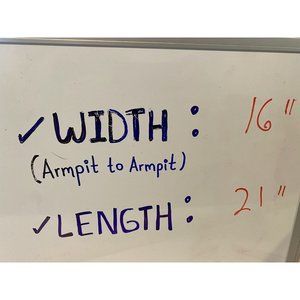 ✓ WIDTH : 16"
(Armpit to Armpit)
✓ LENGTH : 21"